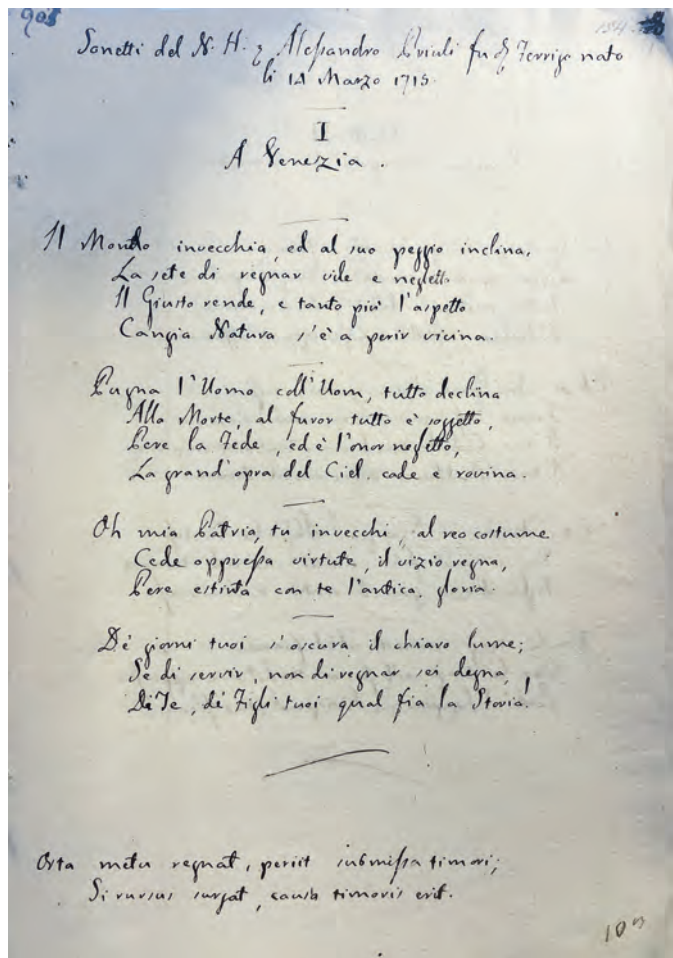 908
184
Sonetti del N. H. Alessandro Priuli fu Ferrigo nato
li 14 Marzo 1713.
I
A Venezia.
Il Mondo invecchia, ed al suo peggio inclina,
La sete di regnar vile e negletto
Il Giusto rende, e tanto più l'aspetto
Cangia Natura s'è a perir vicina.
Pugna l'Uomo coll'Uom, tutto declina
Alla Morte, al furor tutto è soggetto,
Pere la Fede, ed è l'onor negletto,
La grand'opra del Ciel cade e rovina.
Oh mia Patria, tu invecchi, al reo costume
Cede oppressa virtute, il vizio regna,
Pere estinta con te l'antica gloria.
De' giorni tuoi s'oscura il chiaro lume;
Se di servir, non di regnar sei degna,
Di Te, de' Figli tuoi qual fia la Storia!
Orta metu regnat, periit submissa timori;
Si rursus surgat, causa timoris erit.